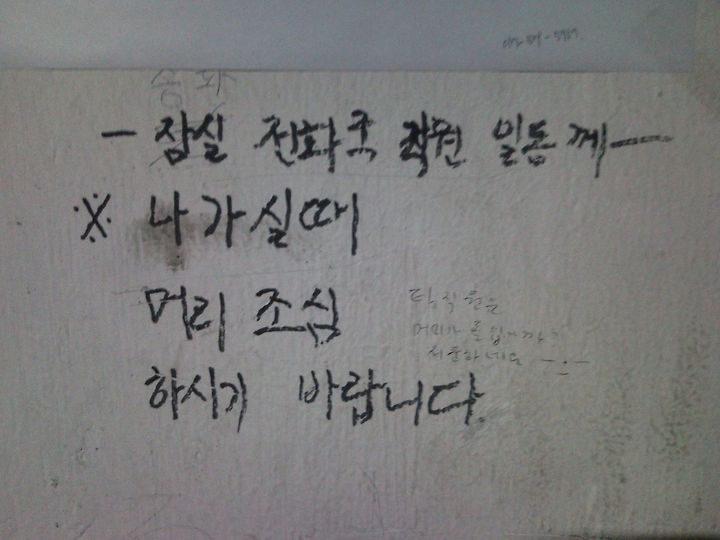 송파
- 잠실 전화국 직원 일동께 -
※ 나가실때
머리 조심
하시기 바랍니다.
타직원은